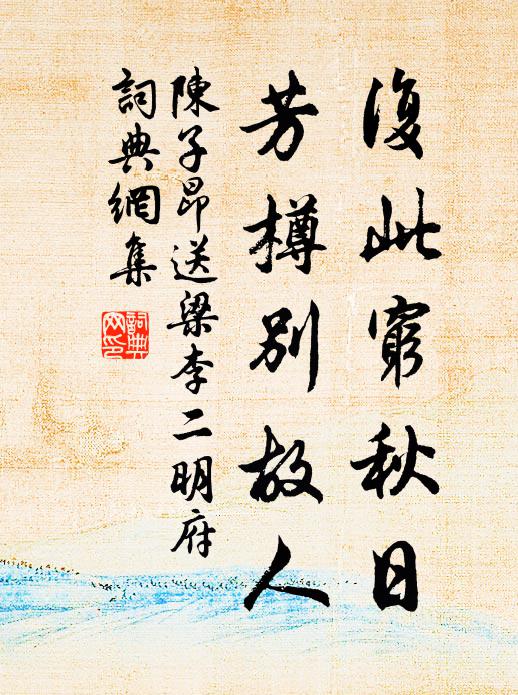 復此窮秋日
芳樽別故人
陳子昂送梁李二明府
詞典網集
詞典網印